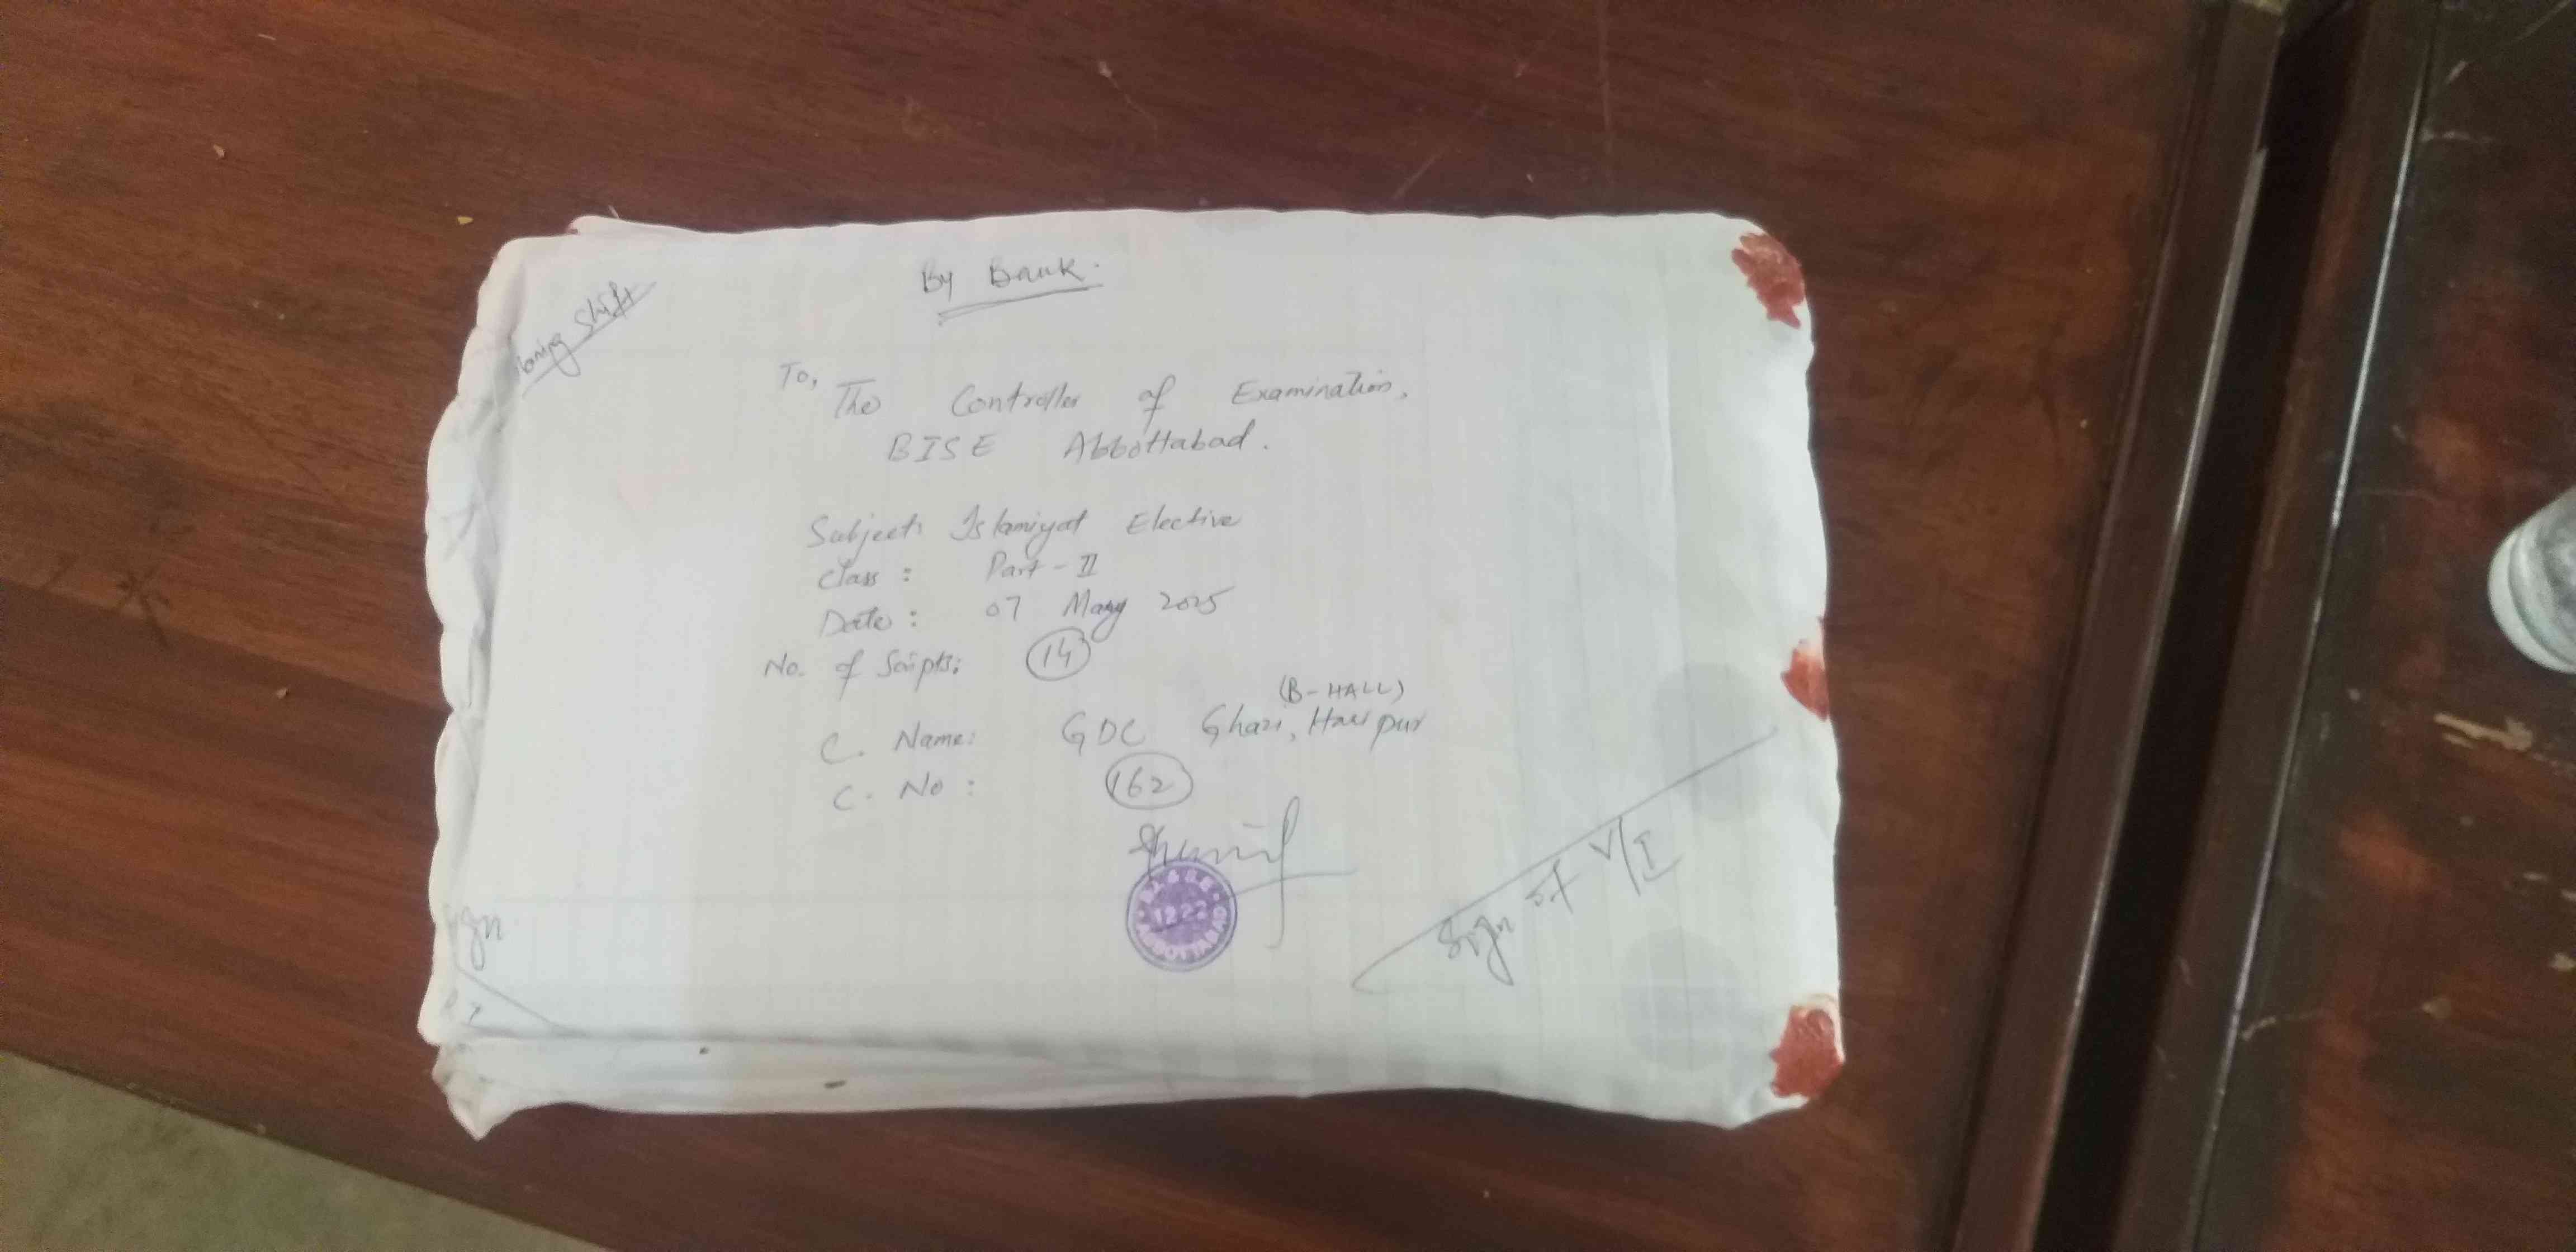 By Bank.
Shift
To,
The Controller of Examination,
BISE Abbottabad.
Subject: Islamiyat Elective
Class : Part - II
Date : 07 May 2025
No. of Scripts: 14
(B-HALL)
C. Name: GDC Ghazi, Haripur
C. No : 162
1222
Sign of V/I